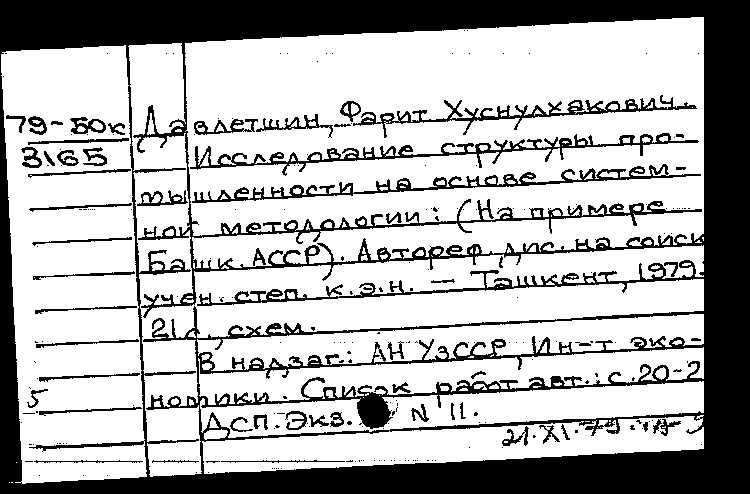 79-50к Давлетшин, Фарит Хуснулхакович.
3165 Исследование структуры про-
мышленности на основе систем-
ной методологии: (На примере
Башк. АССР). Автореф. дис. на соиск
учен. степ. к.э.н. — Ташкент, 1979.
21 с., схем.
В надзаг.: АН УзССР, Ин-т эко-
номики. Список работ авт.: с. 20-2
5
ДСП. Экз. N 11.
21.XI.79